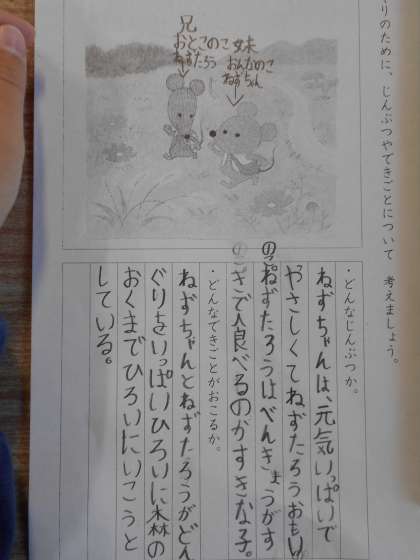 りのために、じんぶつやできごとについて　考えましょう。
兄
おとこのこ
ねずたろう
妹
おんなのこ
ねずちゃん
・どんなじんぶつか。
ねずちゃんは、元気いっぱいで
やさしくてねずたろうおもい
のこ。ねずたろうはべんきょうがす
きで食べるのがすきな子。
・どんなできごとがおこるか。
ねずちゃんとねずたろうがどん
ぐりをいっぱいひろいに森の
おくまでひろいにいこうと
している。